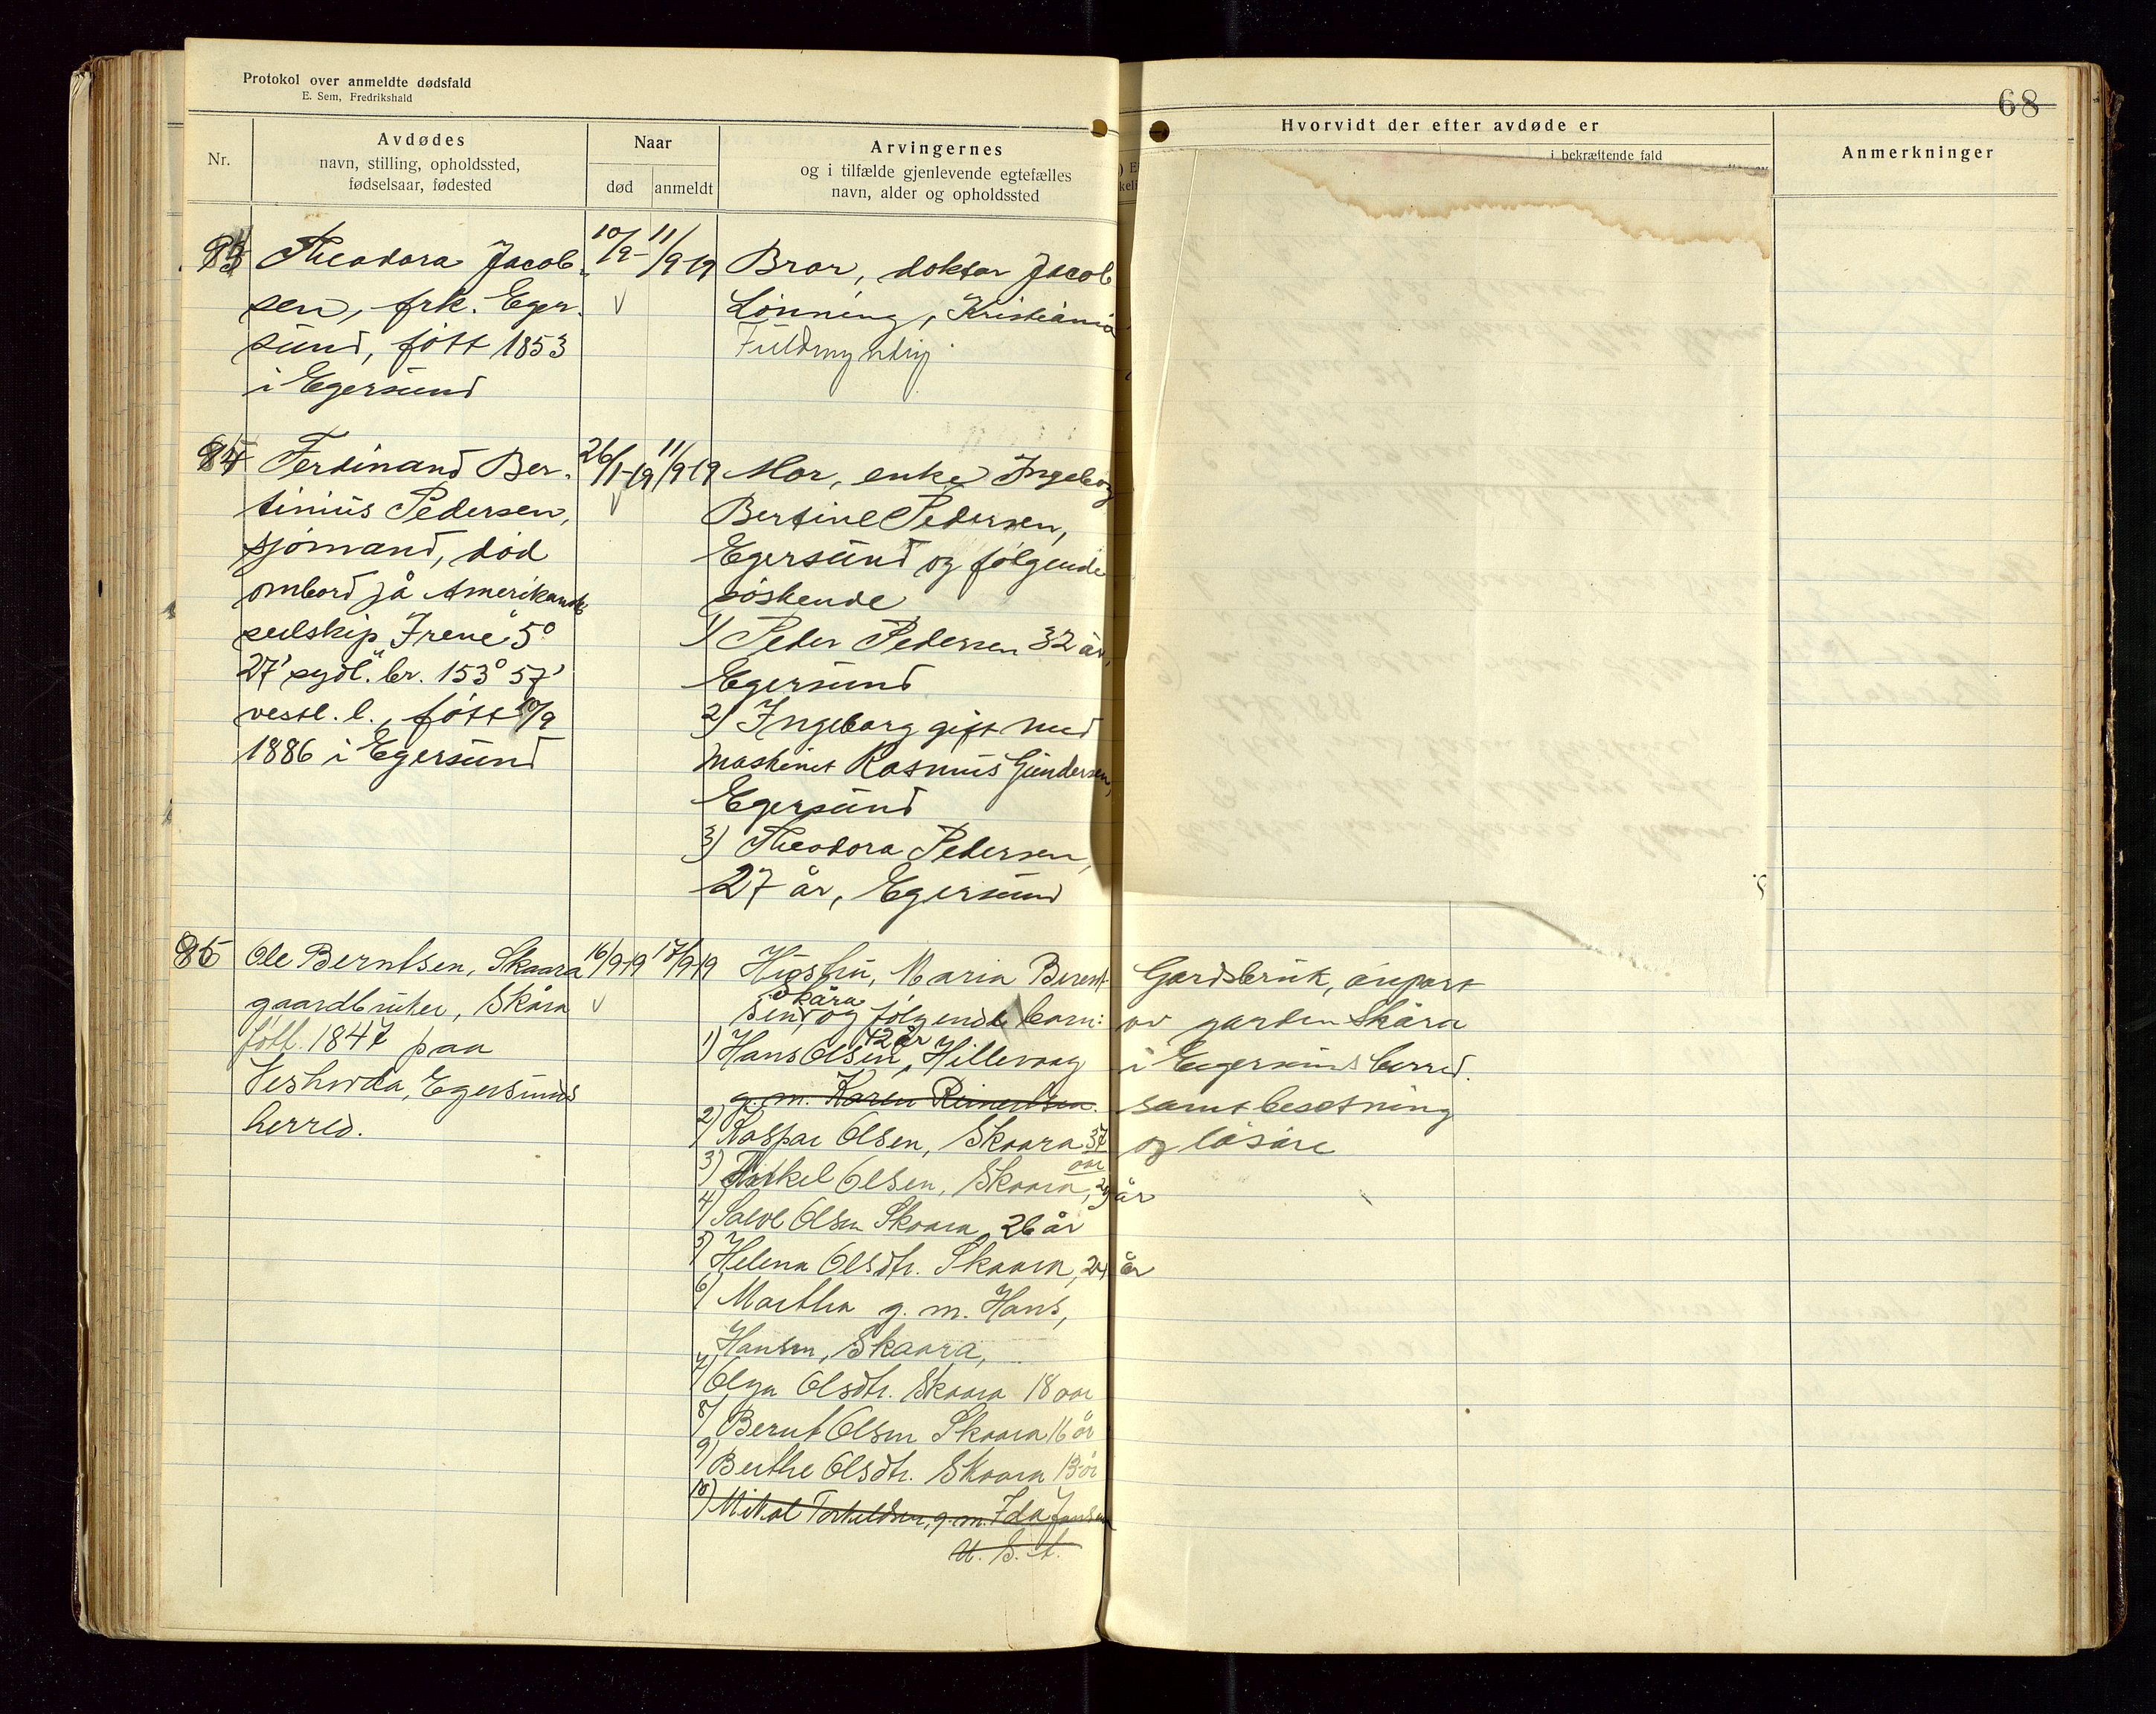 Protokol over anmeldte dødsfald
E. Sem, Fredrikshald
68
Nr.
Avdødes
navn, stilling, opholdssted,
fødselsaar, fødested
Naar
død
anmeldt
Arvingernes
og i tilfælde gjenlevende egtefælles
navn, alder og opholdssted
Hvorvidt der efter avdøde er
i bekræftende fald
Anmerkninger
Theodora Jacob-
sen, frk. Eger-
sund, født 1853
i Egersund
10/9- 11/9 19
Bror, doktor Jacob
Lönning, Kristiania
Fuldmyndig.
84 Ferdinand Ber-
tinius Pedersen,
sjömand, död
ombord på Amerikansk
seilskip "Irene" 5°
27' sydl. br. 153° 57'
vestl. l., født /9
1886 i Egersund
26/1-19 11/9-19
Mor, enke Ingeborg
Bertine Pedersen,
Egersund og følgende
söskende
1) Peder Pedersen 32 år,
Egersund
2) Ingeborg gift med
maskinist Rasmus Gundersen,
Egersund
3) Theodora Pedersen,
27 år, Egersund
Ole Berntsen, Skaara
gaardbruker, Skåra
født. 1847 paa
Egersunds
herred.
16/9 19 17/9 19
Hustru, Maria Berent-
Skåra
sen, og følgende barn:
42 år
1) Hans Olsen, Hillevaag
g. m. Karen Reinertsen.
2) Kaspar Olsen, Skaara 37
aar
3) Torkel Olsen, Skaara, 29 år
4) Salve Olsen Skaara, 26 år
5) Helena Olsdtr. Skaara, 24 år
6) Martha g. m. Hans,
Hansen, Skaara,
7) Olga Olsdtr. Skaara 18 aar
8) Bernt Olsen Skaara 16 år
9) Berthe Olsdtr. Skaara 13 år
10) Mikal Torkeldsen, g. m. Ida Jansen
U. S. A.
Gardsbruk, anpart
av garden Skåra
i Egersunds herred.
samt besetning
og løsøre